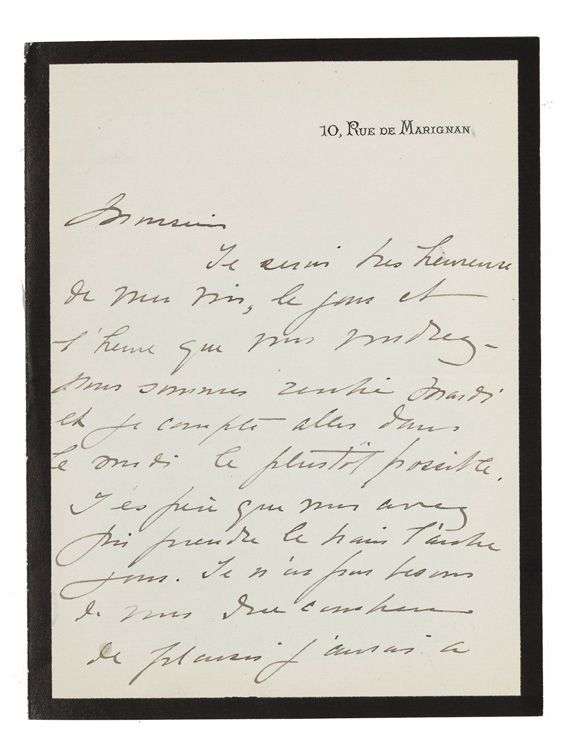 10, RUE DE MARIGNAN
Monsieur
Je serai tres heureuse
de vous voir, le jour et
l'heure que vous voudrez –
Nous sommes rentré Mardi
et je compte aller dans
le midi le plustôt possible.
J'éspère que vous avez
pu prendre le train l'autre
jour. Je n'ai pas besoin
de vous dire combien
de plaisir j'aurai a